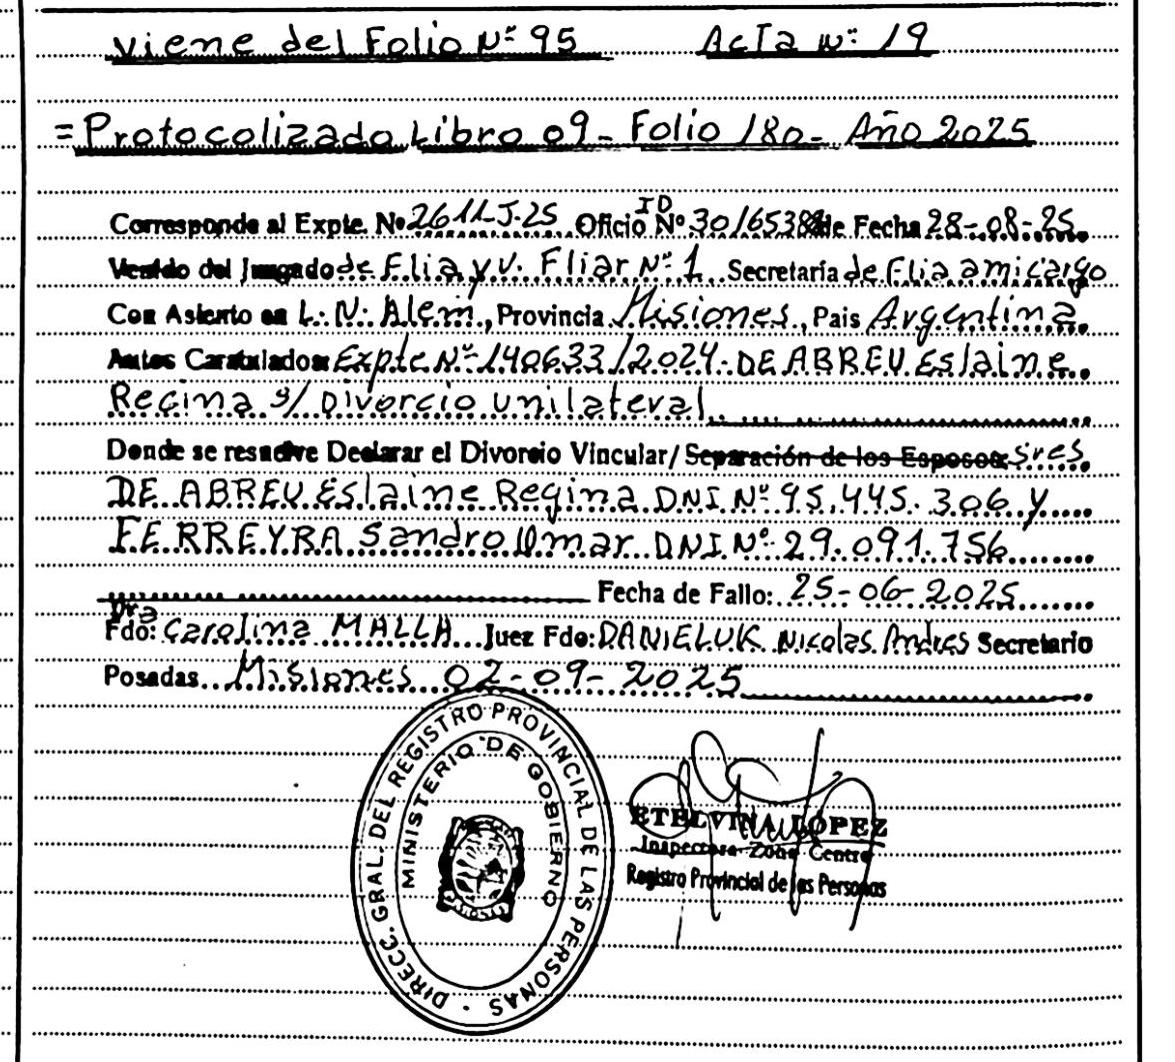 viene del Folio Nº 95 Acta Nº 19
=Protocolizado Libro 09- Folio 180- Año 2025
Corresponde al Expte. Nº 2611-J-25 Oficio ID Nº 3016538 de Fecha 28-08-25
Venido del Juzgado de Flia y V. Fliar Nº 1 Secretaría de Flia a mi cargo
Con Asiento en L. N. Alem, Provincia Misiones, Pais Argentina
Autos Caratulados Expte Nº 140633/2024- DE ABREU Eslaine
Regina s/ Divorcio unilateral
Donde se resuelve Declarar el Divorcio Vincular/ Separación de los Esposos: sres
DE ABREU Eslaine Regina DNI Nº 95.445.306 y
FERREYRA Sandro Omar DNI Nº 29.091.756
Fecha de Fallo: 25-06-2025
Dra
Fdo: Carolina MALLA Juez Fdo: DANIELUK Nicolas Andres Secretario
Posadas Misiones 02-09-2025
DIRECC. GRAL. DEL REGISTRO PROVINCIAL DE LAS PERSONAS
MINISTERIO DE GOBIERNO
ETELVINA LÓPEZ
Inspectora Zona Centro
Registro Provincial de las Personas